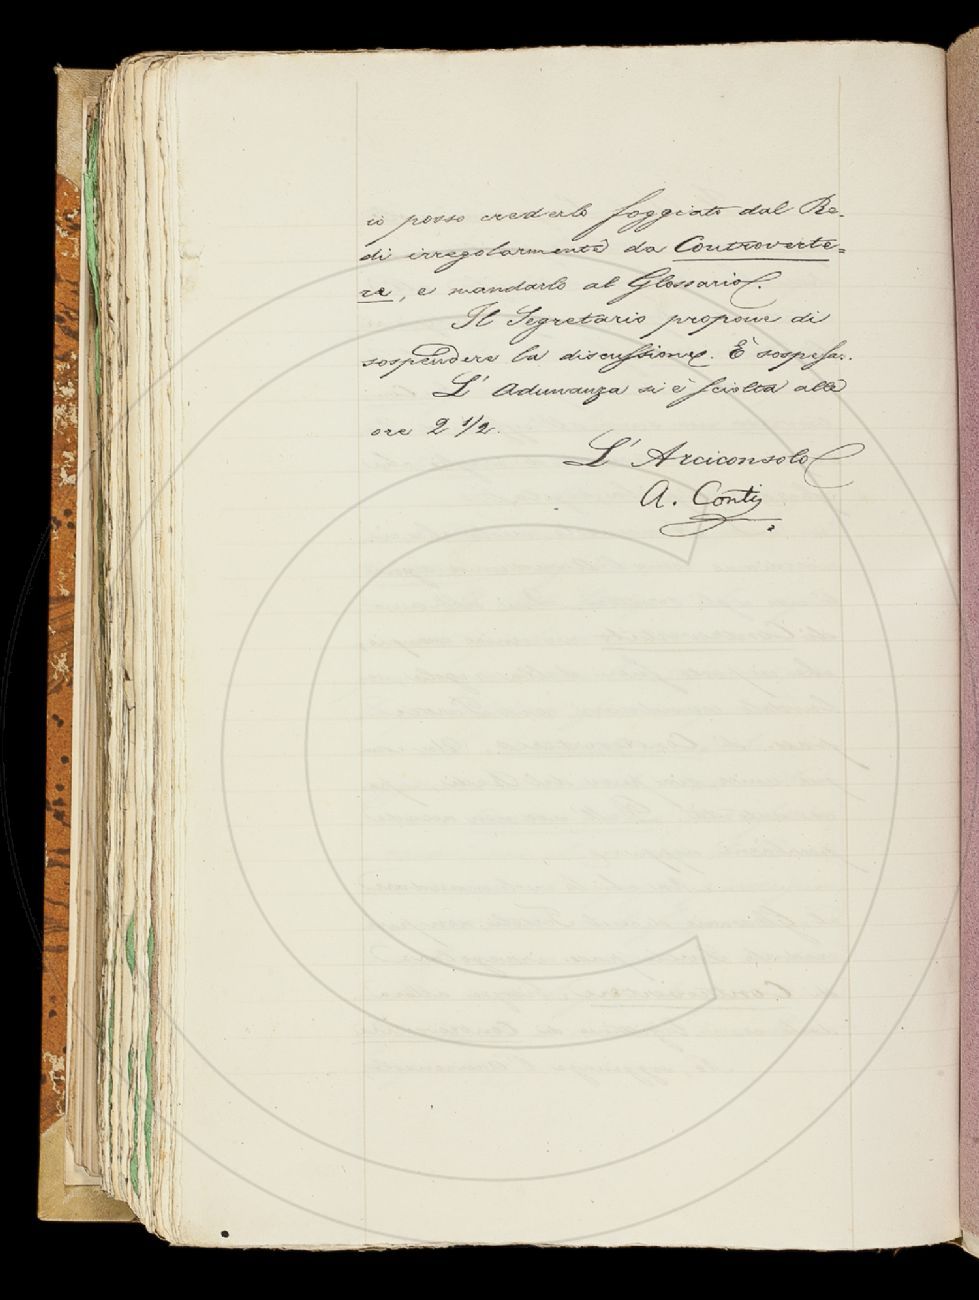 io posso crederlo foggiato dal Re-
di irregolarmente da Controverte=
re, e mandarlo al Glossario.
Il Segretario propone di
sospendere la discussione. È sospesa.
L' Adunanza si è sciolta alle
ore 2 1/2.
L' Arciconsolo
A. Conti